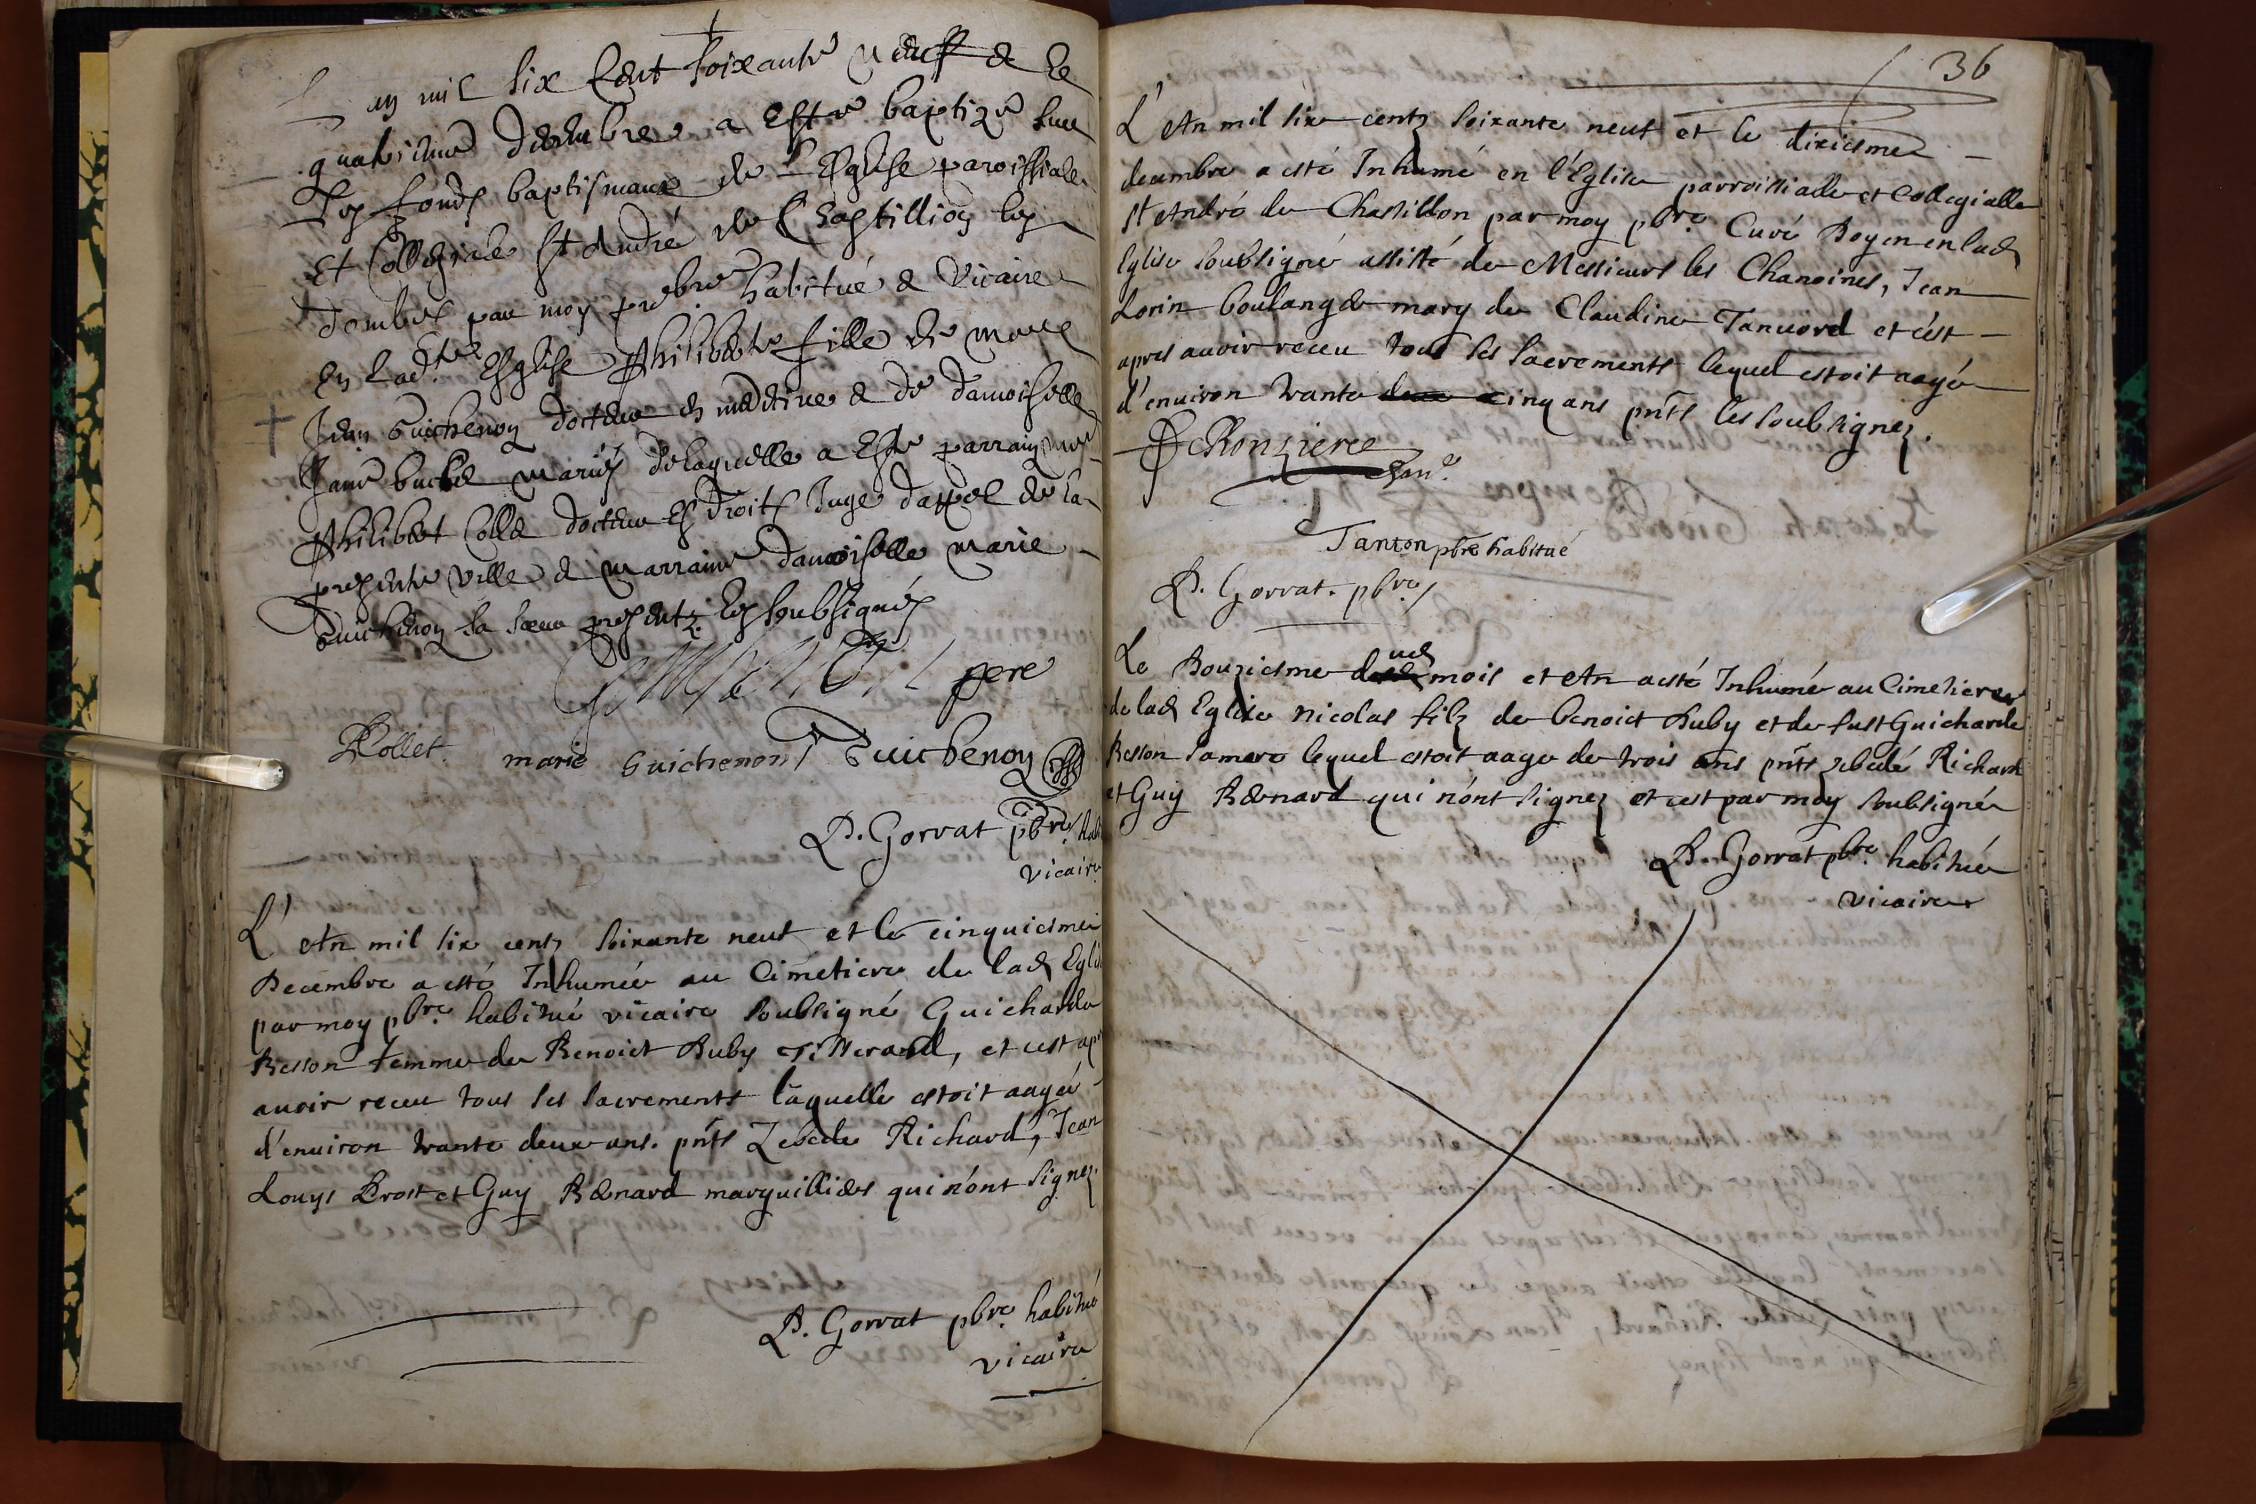 L'an mil six Cent soixante Neuff & le
quatriesme decembre a Esté baptizé sur
les fonds baptismaux de L'Esglise paroissiale
Et Collegiale St André de Chastillion les
dombes par moy prebre habitué & Vicaire
En ladte Esglise Philiberte fille de mre
Jean Guichenon docteur en medecine & de damoiselle
Jane mariés delaquelle a Esté parrain
Philibert docteur Es droits Juge dappel de la
presente ville & marraine damoiselle marie
Guichenon sa soeur presents les soubsignés
pere
Rollet marie Guichenon Guichenon
P. Gorrat pbre hab
vicaire
L'An mil six cents soixante neuf et le cinquiesme
Decembre a esté Inhumée au Cimetiere de lad Eglise
par moy pbre habitué vicaire soubsigné Guicharde
Besson femme de Benoict Buby et cest apr
avoir receu tous les sacrements laquelle estoit aagée
d'environ trante deux ans. pnts Zebede Richard, Jean
Louys Brost et Guy Bernard marguilliers qui n'ont signez
P. Gorrat pbre habitué
vicaire
36
L'An mil sixe cents soixante neuf et le dixiesme
decembre a esté Inhumé en l'Eglise parroissialle et Collegialle
St André de Chastillon par moy pbre Curé Doyen en lad
Eglise soubsigné assisté de Messieurs les Chanoines, Jean
Lorin boulanger mary de Claudine Tanvord et c'est
apres avoir receu tous les sacrements lequel estoit aagé
d'environ trante cinq ans pnts les soubsignez.
Chan.
Tanton pbre habitué
P. Gorrat. pbre
Le Douziesme dud mois et An a esté Inhumé au Cimetiere
de lad Eglise Nicolas filz de benoict Buby et de fust Guicharde
Besson sa mere lequel estoit aage de trois ans pnts zebedé Richard
et Guy Bernard qui n'ont signez et cest par moy soubsigné
P. Gorrat pbre habitué
vicaire